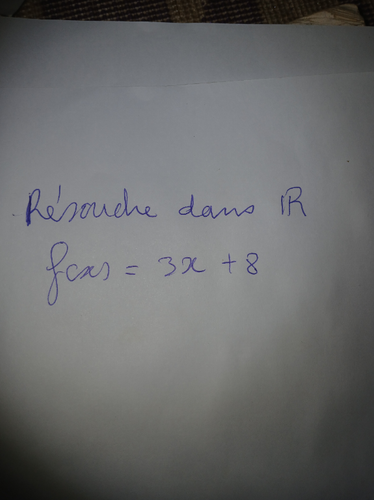 Résoudre dans ℝ
f(x) = 3x + 8